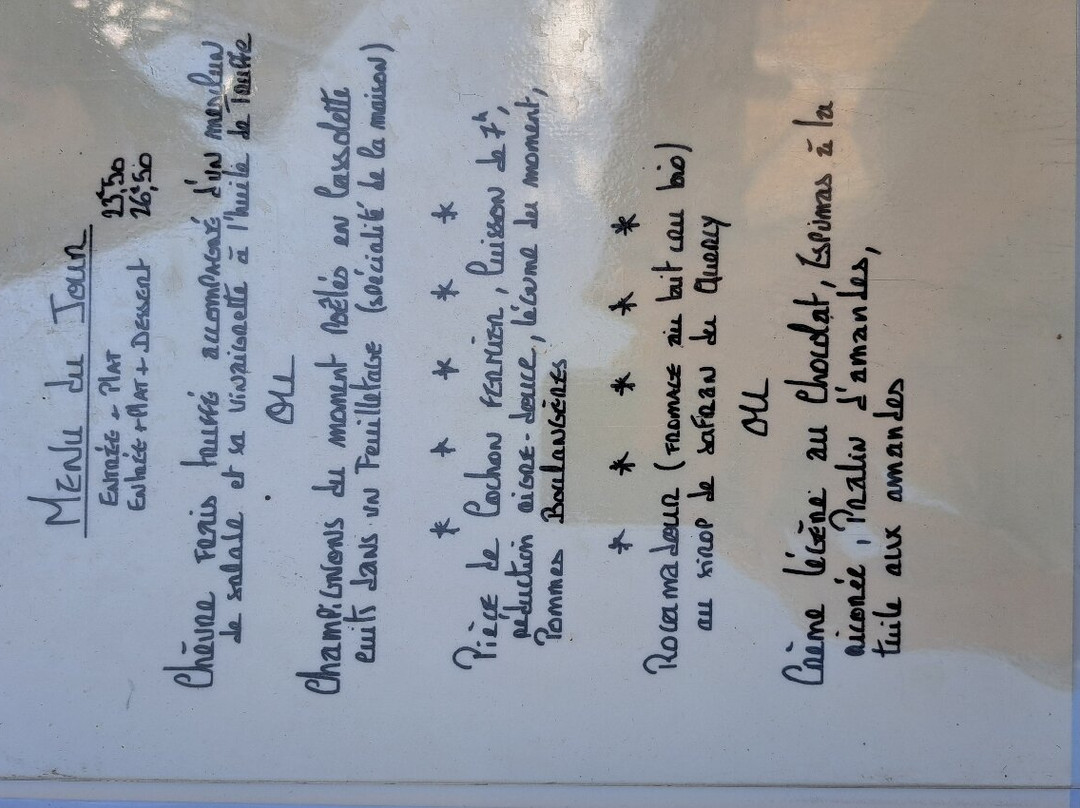 MENU du JOUR
ENTRÉE + PLAT 23€,50
ENTRÉE + PLAT + DESSERT 26€,50
Chèvre FRAIS truffé accompagné d'un mesclun
de salade et sa vinaigrette à l'huile de Truffe
OU
Champignons du moment poêlés en Cassolette
cuits dans un Feuilletage (spécialité de la maison)
* * * * *
Pièce de Cochon FERMIER, Cuisson de 7h,
réduction aigre-douce, légume du moment,
Pommes Boulangères
* * * * *
Rocamadour (FROMAGE au lait cru bio)
au sirop de safran du Quercy
OU
Crème légère au Chocolat, Espumas à la
chicorée, Pralin d'amandes,
tuile aux amandes